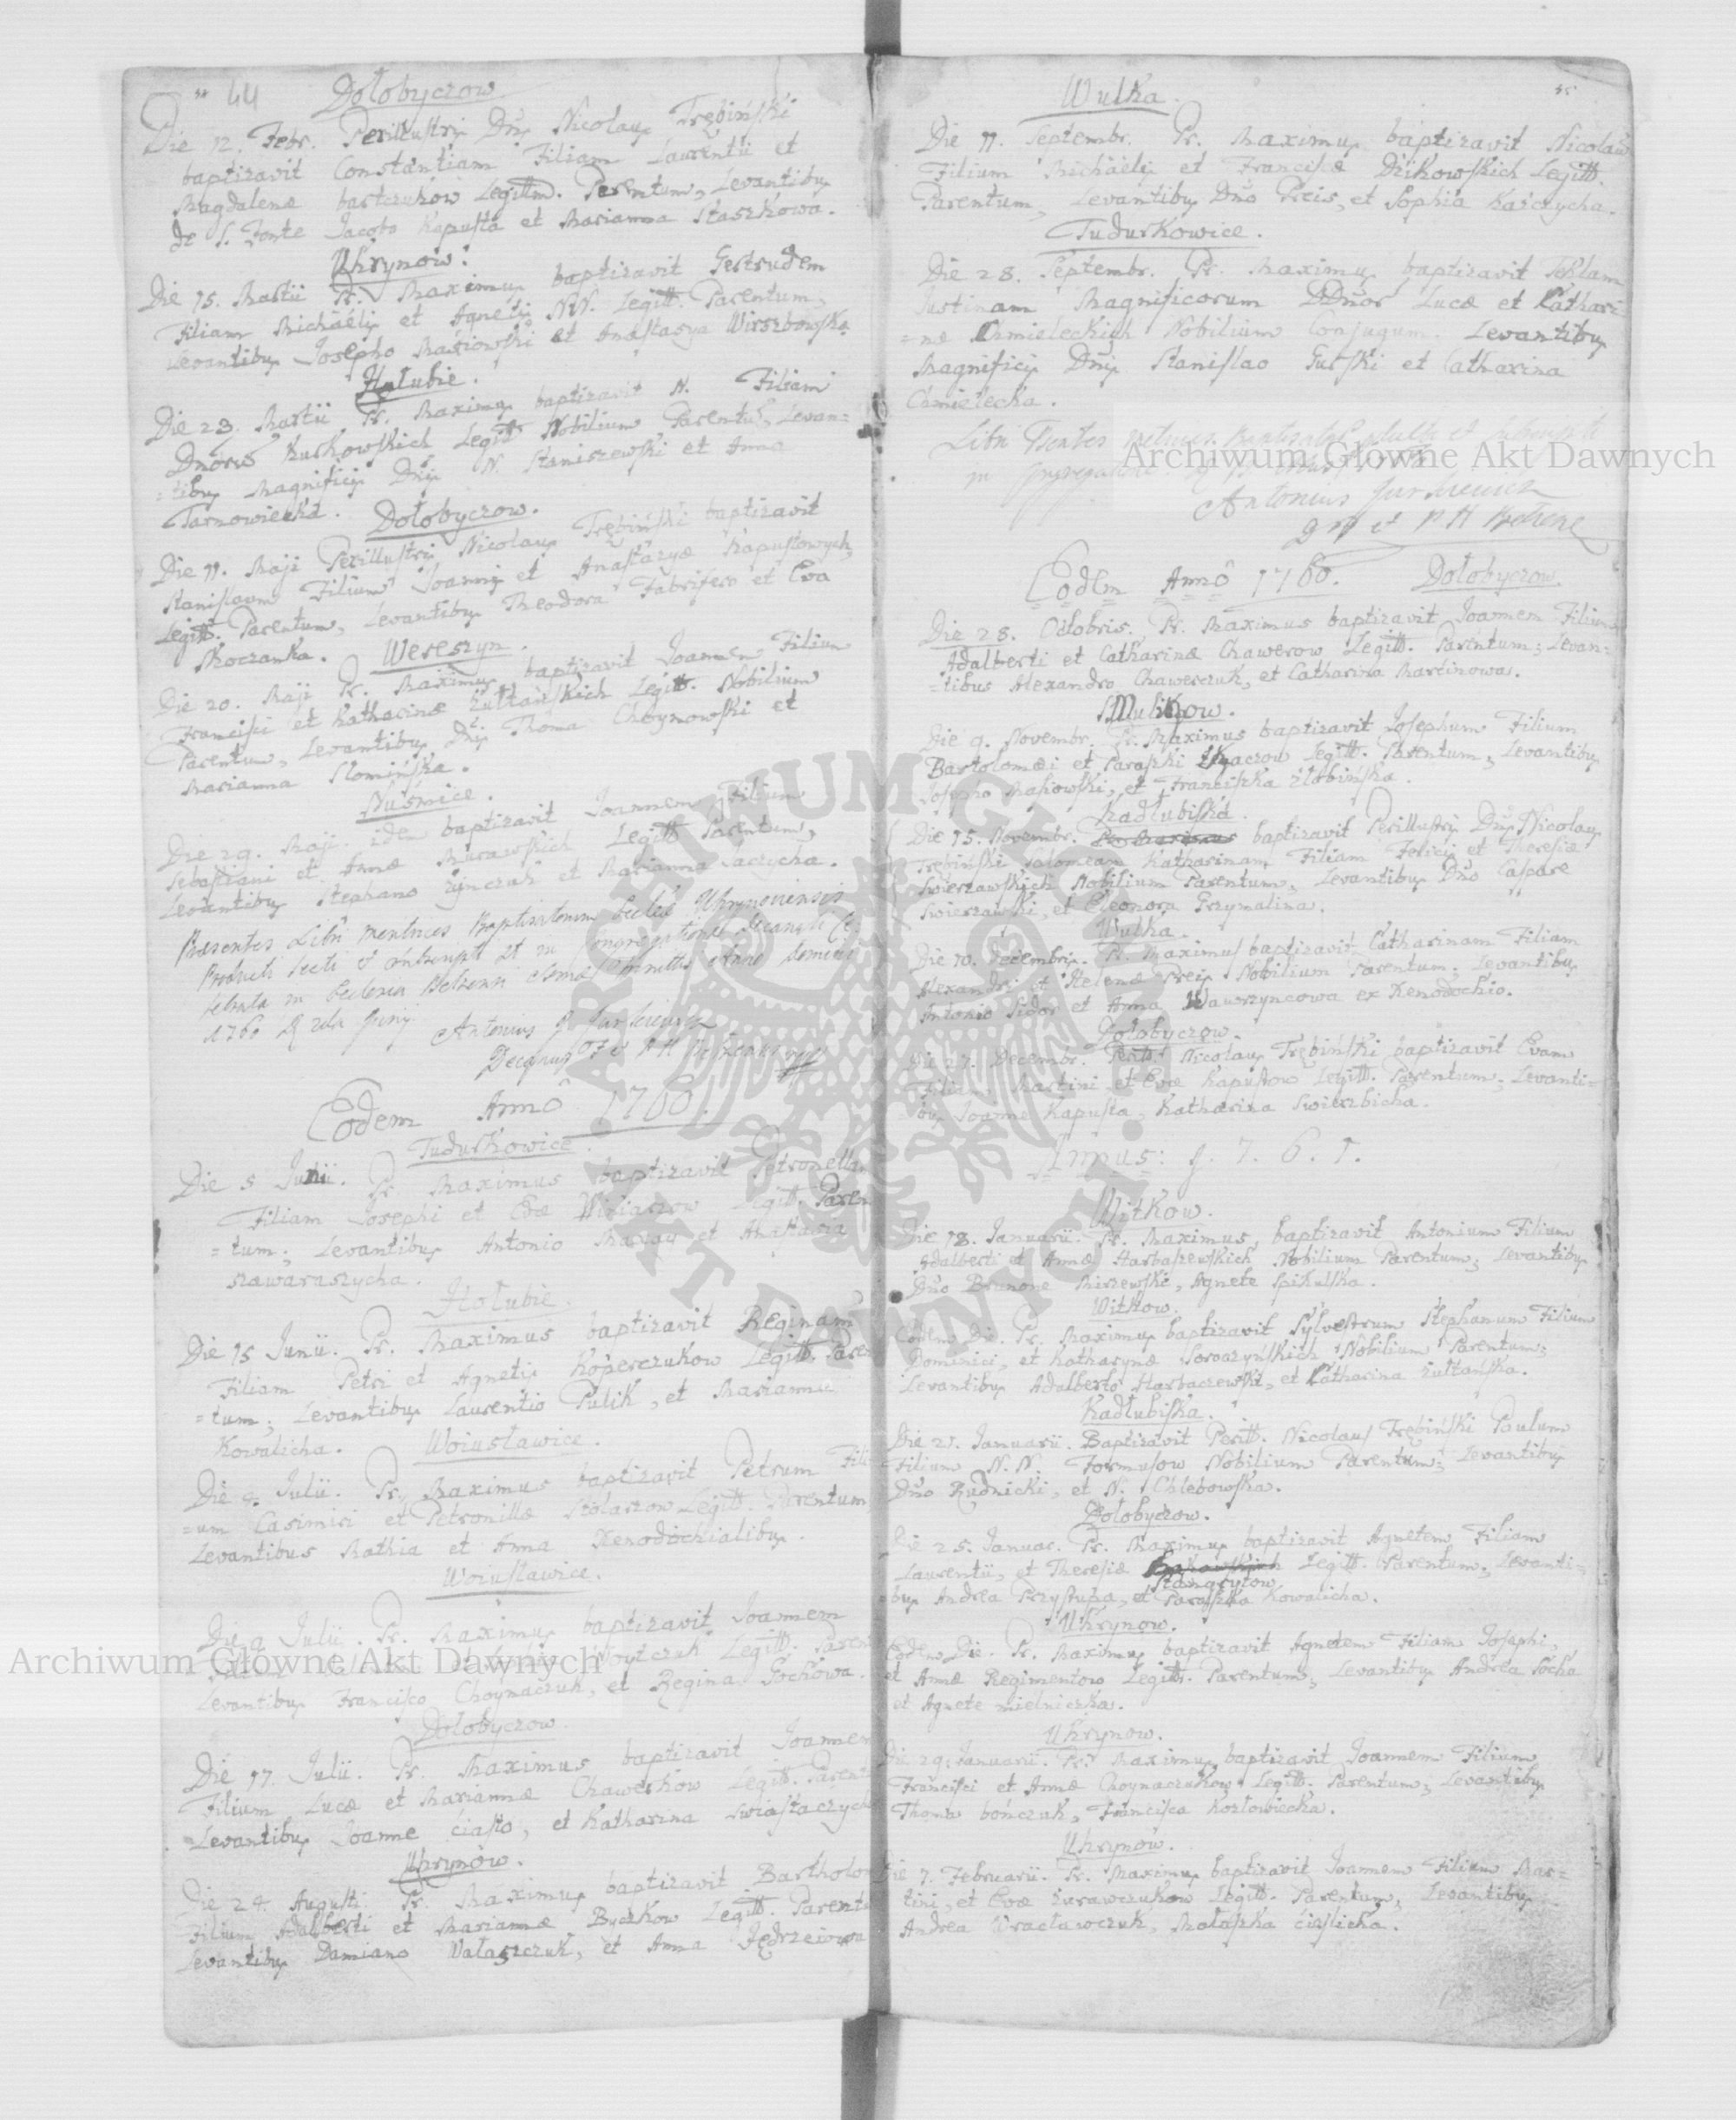 44
Dołobyczow
Die 12. Febr. Perillustris Dnus Nicolaus Trębiński
baptizavit Constantiam Filiam Laurentii et
Magdalenæ bartczukow Legittm. Parentum, Levantibus
de S. Fonte Jacobo Kapusta et Marianna Staszkowa.
Uhrynow.
Die 15. Martii Pr. Maximus baptizavit Gertrudem
Filiam Michaelis et Agnetis N.N. Legitt. Parentum,
Levantibus Josepho Masiowski et Anastasya Wirzbowska
Hołubie.
Die 23. Martii Pr. Maximus baptizavit N. Filiam
Dnorum Kurkowskich Legitt Nobilium Parentum, Levan=
=tibus Magnificis Dnis N. Staniszewski et Anna
Tarnowiecka.
Dołobyczow.
Die 11. Maji Perillustris Nicolaus Trębiński baptizavit
Stanislaum Filium Joannis et Anastazyæ Kapustowych
Legitt. Parentum, Levantibus Theodora Fabrifero et Eva
Moczanka.
Wereszyn.
Die 20. Maji Pr. Maximus baptizavit Joannem Filium
Francisci et Katharinæ Zułtańskich Legitt. Nobilium
Parentum, Levantibus Dnis Thoma Choynowski et
Marianna Słomińska.
Nuśmice.
Die 29. Maji idem baptizavit Joannem Filium
Sebastiani et Annæ Murawskich Legitt Parentum,
Levantibus Stephano Zynczuk et Marianna Saczycha.
Præsentes Libri Metrices Baptisatorum Ecclæ Uhrynoviensis
Producti Lecti et in Congregatione Decanali Ce
lebrata in Ecclesia Anno Domini
1760 Junij
Antonius Jurkiewicz
Decanus
Eodem Anno 1760.
Tudurkowice.
Die 5 Junii. Pr. Maximus baptizavit Petronellam
Filiam Josephi et Evæ Winiarzow Legitt. Paren
=tum; Levantibus Antonio Mazay et Anastasia
Szawaraszycha.
Hołubie.
Die 15 Junii. Pr. Maximus baptizavit Reginam
Filiam Petri et Agnetis Koperczukow Legitt. Paren
=tum; Levantibus Laurentio Pulik, et Marianna
Kowalicha.
Woiusławice.
Die 9. Julii. Pr. Maximus baptizavit Petrum Fili
=um Casimiri et Petronillæ Stolarzow Legitt. Parentum
Levantibus Mathia et Anna Xenodochialibus.
Woiusławice.
Die 9 Julii. Pr. Maximus baptizavit Joannem
Woytczuk Legitt. Paren
Levantibus Francisco Choynaczuk, et Regina Sochowa.
Dołobyczow.
Die 17. Julii. Pr. Maximus baptizavit Joannem
Filium Lucæ et Mariannæ Chawerkow Legitt. Parent
Levantibus Joanne Ciasto, et Katharina Swiastaczych
Uhrynow.
Die 24. Augusti. Pr. Maximus baptizavit Bartholom
Filium Adalberti et Mariannæ Byczkow Legitt. Parent
Levantibus Damiano Wałaszczuk, et Anna Jędrzeiowa
Wulka
Die 11. Septembr. Pr. Maximus baptizavit Nicolaum
Filium Michäelis et Franciscæ Dzikowskich Legitt.
Parentum, Levantibus Dno Preis, et Sophia Karczycha.
Tudurkowice.
Die 28. Septembr. Pr. Maximus baptizavit Teklam
Justinam Magnificorum DDnor Lucæ et Cathari
=næ Chmieleckich Nobilium Conjugum. Levantibus
Magnificis Dnis Stanislao Gurski et Catharina
Chmielecka.
Libri
in Congregatione
Antonius Jurkiewicz
Eodem Anno 1760. Dołobyczow
Die 28. Octobris. Pr. Maximus baptizavit Joannem Filium
Adalberti et Catharinæ Chawerow Legitt. Parentum; Levan=
=tibus Alexandro Chawerczuk, et Catharina Marcinowa.
Mulikow.
Die 9. Novembr. Pr. Maximus baptizavit Josephum Filium
Bartolomæi et Paraski Legitt. Parentum; Levantibus
Josepho Masiowski, et Franciszka Złobińska.
Kadłubiska.
Die 15. Novembr. baptizavit Perillustris Dnus Nicolaus
Trębiński Salomeam Katharinam Filiam Felicis et Theresiæ
Swierzawskich Nobilium Parentum, Levantibus Dno Caspare
Swierzawski, et Eleonora Grzymalina.
Wulka.
Die 10. Decembris. Pr. Maximus baptizavit Catharinam Filiam
Alexandri et Helenæ Preis Nobilium Parentum; Levantibus
Antonio Sidor et Anna Wawrzyncowa ex Xenodochio.
Dołobyczow.
Die 27. Decembr. Perill. Nicolaus Trębiński baptizavit Evam
Filiam Martini et Evæ Kapustow Legitt. Parentum; Levanti=
bus Joanne Kapusta, Katharina Swierzbicha.
Annus: 1. 7. 6. 1.
Witkow.
Die 18. Januarii. Pr. Maximus, baptizavit Antonium Filium
Adalberti et Annæ Harbaszewskich Nobilium Parentum; Levantibus
Dno Brunone Mirzewski, Agnete Spikulska.
Witkow.
Eodem Die. Pr. Maximus baptizavit Sylvestrum Stephanum Filium
Dominici, et Katharynæ Soroczyńskich Nobilium Parentum;
Levantibus Adalberto Harbaczewski, et Catharina Zułtańska.
Kadłubiska.
Die 21. Januarii. Baptizavit Perill. Nicolaus Trębiński Paulum
Filium N.N. Formusow Nobilium Parentum; Levantibus
Dno Rudnicki, et N. Chlebowska.
Dołobyczow.
Die 25. Januar. Pr. Maximus baptizavit Agnetem Filiam
Laurentii, et Theresiæ Legitt. Parentum; Levanti=
bus Andrea Przystupa, et Paraszka Kowalicha.
Uhrynow.
Eodem Die. Pr. Maximus baptizavit Agnetem Filiam Josephi,
et Annæ Regimentow Legitt. Parentum; Levantibus Andrea Socha
et Agnete mielniczka.
Uhrynow.
Die 29. Januarii. Pr. Maximus baptizavit Joannem Filium
Francisci et Annæ Choynaczukow Legitt. Parentum; Levantibus
Thoma bończuk, Francisca Kozłowiecka.
Uhrynow.
Die 7. Februarii. Pr. Maximus baptizavit Joannem Filium Mar=
tini, et Evæ Zurawczukow Legitt. Parentum; Levantibus
Andrea Wracławczuk, Małaszka Cieslicha.
Archiwum Głowne Akt Dawnych
Archiwum Głowne Akt Dawnych
ARCHIWUM GŁÓWNE AKT DAWNYCH